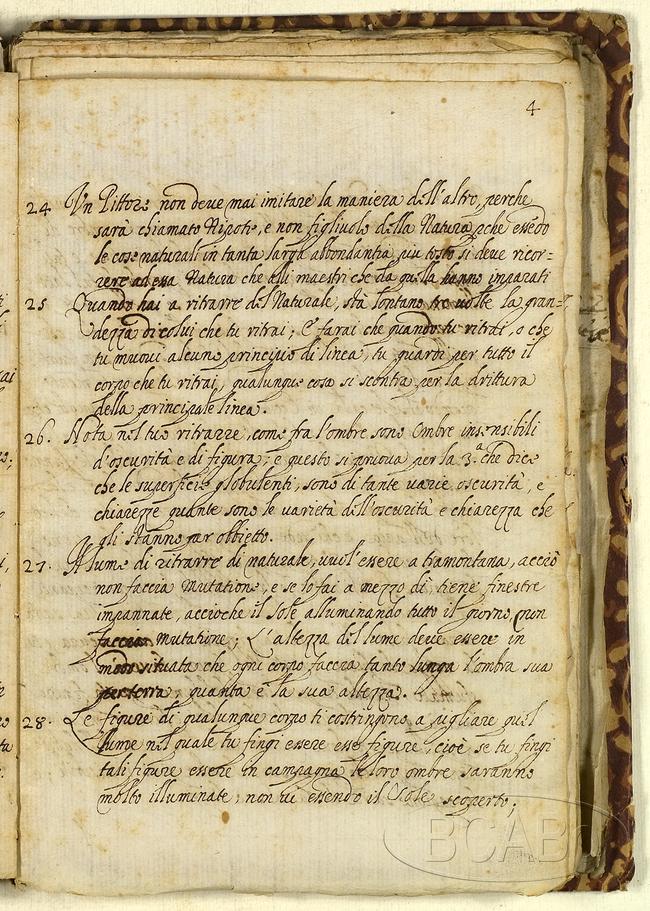 4
24. Un Pittore non deve mai imitare la maniera dell'altro, perche
sarà chiamato Nipote, e non figliuolo della Natura, pche essedo
le cose naturali in tanta larga abbondantia, più tosto si deve ricor=
rere ad essa Natura che alli maestri che da quella hanno imparati
25 Quando hai a ritrarre del Naturale, stà lontano tre volte la gran=
dezza di colui che tu ritrai; E farai che quando tu ritrai, o che
tu muovi alcuno principio di linea, tu guardi per tutto il
corpo che tu ritrai, qualunque cosa si scontra per la drittura
della principale linea.
26. Nota nel tuo ritrarre, come fra l'ombre sono ombre insensibili
d'oscurità e di figura; e questo si pruova per la 3.a che dice
che le superficie globulenti, sono di tante varie oscurità, e
chiarezze quante sono le varietà dell'oscurità e chiarezza che
gli stanno per obbietto.
27. Il lume di ritrarre di naturale, vuol'essere a tramontana, acciò
non faccia mutatione, e se lo fai a mezzo dì, tiene finestre
impannate, accioche il sole alluminando tutto il giorno non
faccia mutatione; L'altezza del lume deve essere in
modo situata che ogni corpo faccia tanto lunga l'ombra sua
per terra, quanta è la sua altezza.
28. Le figure di qualunque corpo ti costringono a pigliare quel
lume nel quale tu fingi essere esse figure, cioè se tu fingi
tali figure essere in campagna le loro ombre saranno
molto illuminate, non vi essendo il Sole scoperto;
BCABo